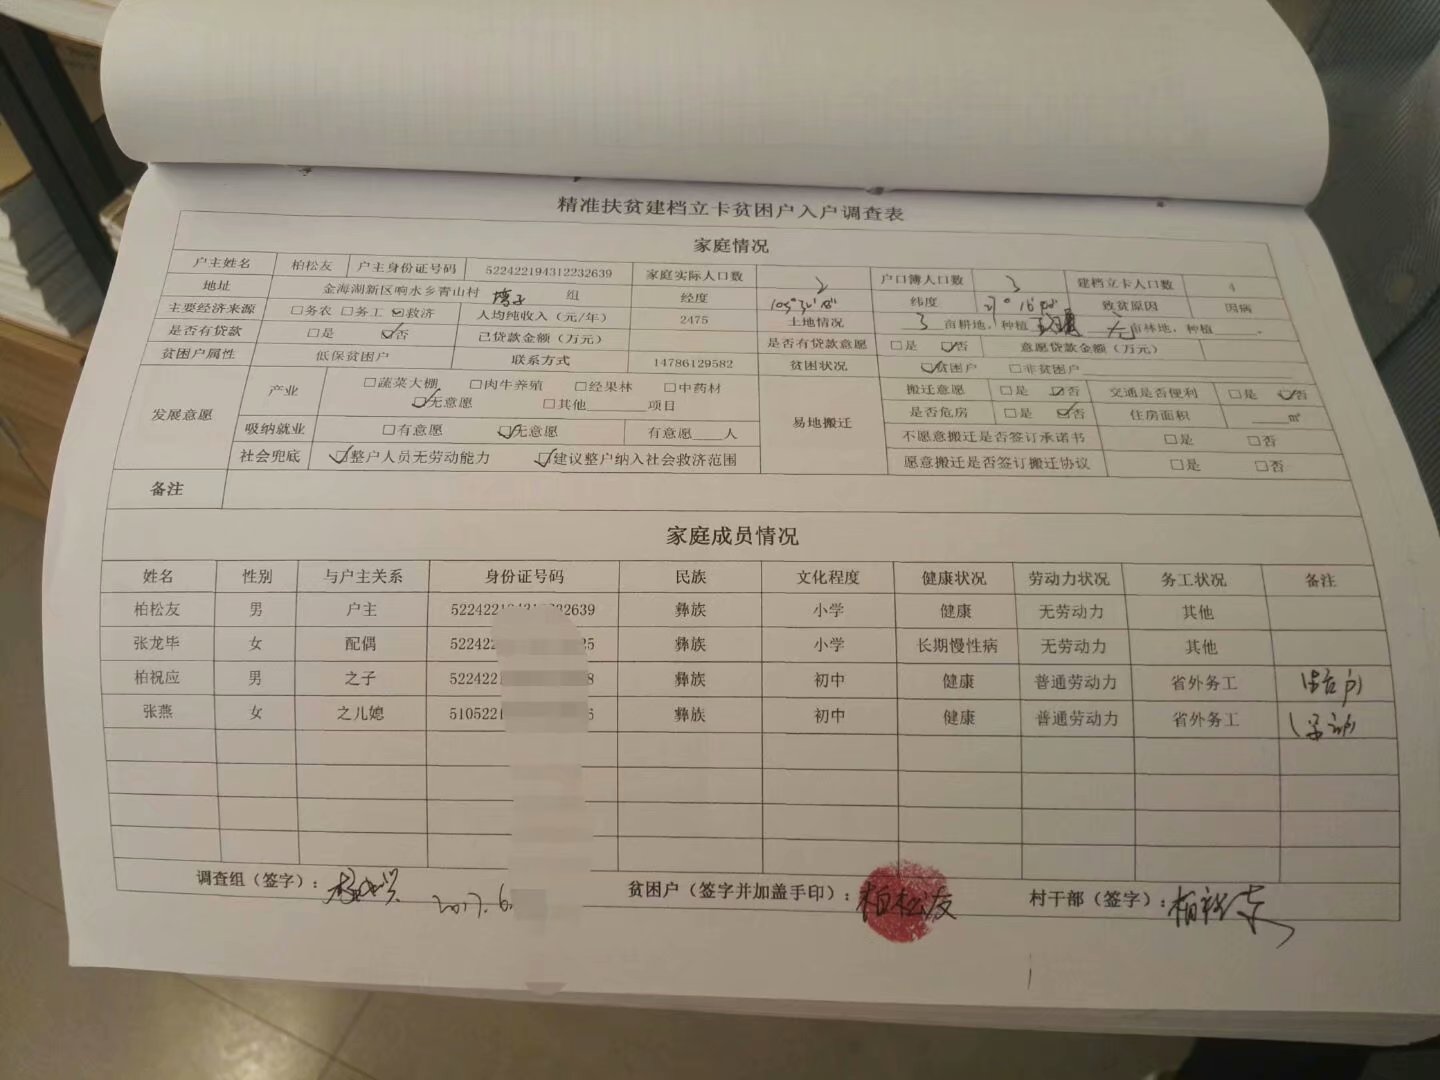 精准扶贫建档立卡贫困户入户调查表
家庭情况
户主姓名 柏松友 户主身份证号码 522422194312232639 家庭实际人口数 2 户口簿人口数 3 建档立卡人口数 4
地址 金海湖新区响水乡青山村 组 经度 纬度 致贫原因 因病
主要经济来源 □务农 □务工 ☑救济 人均纯收入（元/年） 2475 土地情况 3 亩耕地，种植 无 亩林地，种植 。
是否有贷款 □是 ☑否 已贷款金额（万元） 是否有贷款意愿 □是 ☑否 意愿贷款金额（万元）
贫困户属性 低保贫困户 联系方式 14786129582 贫困状况 ☑贫困户 □非贫困户
发展意愿 产业 □蔬菜大棚 □肉牛养殖 □经果林 □中药材 易地搬迁 搬迁意愿 □是 ☑否 交通是否便利 □是 ☑否
☑无意愿 □其他______项目 是否危房 □是 ☑否 住房面积 ____㎡
吸纳就业 □有意愿 ☑无意愿 有意愿____人 不愿意搬迁是否签订承诺书 □是 □否
社会兜底 ☑整户人员无劳动能力 ☑建议整户纳入社会救济范围 愿意搬迁是否签订搬迁协议 □是 □否
备注
家庭成员情况
姓名 性别 与户主关系 身份证号码 民族 文化程度 健康状况 劳动力状况 务工状况 备注
柏松友 男 户主 522422194312232639 彝族 小学 健康 无劳动力 其他
张龙毕 女 配偶 52242 彝族 小学 长期慢性病 无劳动力 其他
柏祝应 男 之子 522422 彝族 初中 健康 普通劳动力 省外务工
张燕 女 之儿媳 510522 彝族 初中 健康 普通劳动力 省外务工
调查组（签字）： 2017.6. 贫困户（签字并加盖手印）：柏松友 村干部（签字）：